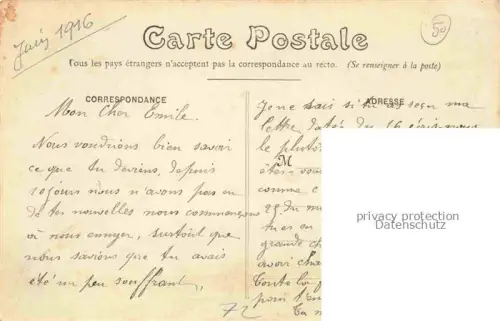 Juin 1916
50
Carte Postale
Tous les pays étrangers n'acceptent pas la correspondance au recto. (Se renseigner à la poste)
CORRESPONDANCE
ADRESSE
Mon Cher Emile.
Nous voudrions bien savoir
ce que tu deviens, depuis
10 jours nous n'avons pas eu
de tes nouvelles nous commençons
à nous ennuyer, surtout que
nous savions que tu avais
été un peu souffrant,
72
Je ne sais si tu as reçu ma
lettre datée du 16 écris nous
le plutôt
M
êtes-vous
comme c
25 du m
tu es en
grande ch
avoir cha
Toute la f
pour t'em
Ta m
privacy protection
Datenschutz